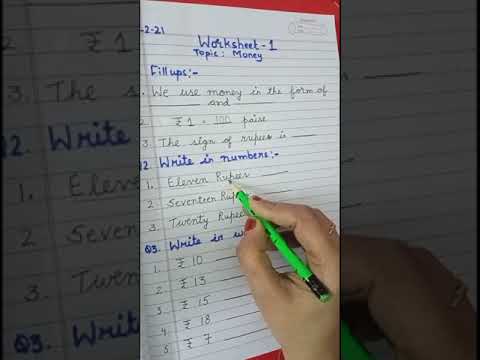 -2-21
Worksheet-1
Topic: Money
Fill ups:-
We use money in the form of
and
2. ₹1 = 100 paise
3. The sign of rupees is
Q2. Write in numbers:-
1. Eleven Rupees
2 Seventeen Rupees
3. Twenty Rupees
Q3. Write in w
1. ₹ 10
2. ₹ 13
3. ₹ 15
4. ₹ 18
5 ₹ 7